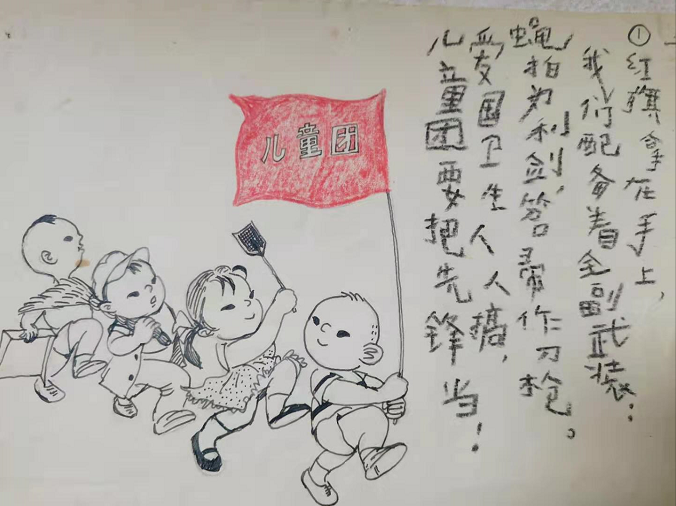 ①红旗拿在手上，
我们配备着全副武装：
蝇拍为利剑，笤帚作刀枪。
爱国卫生人人搞，
儿童团要把先锋当！
儿童团